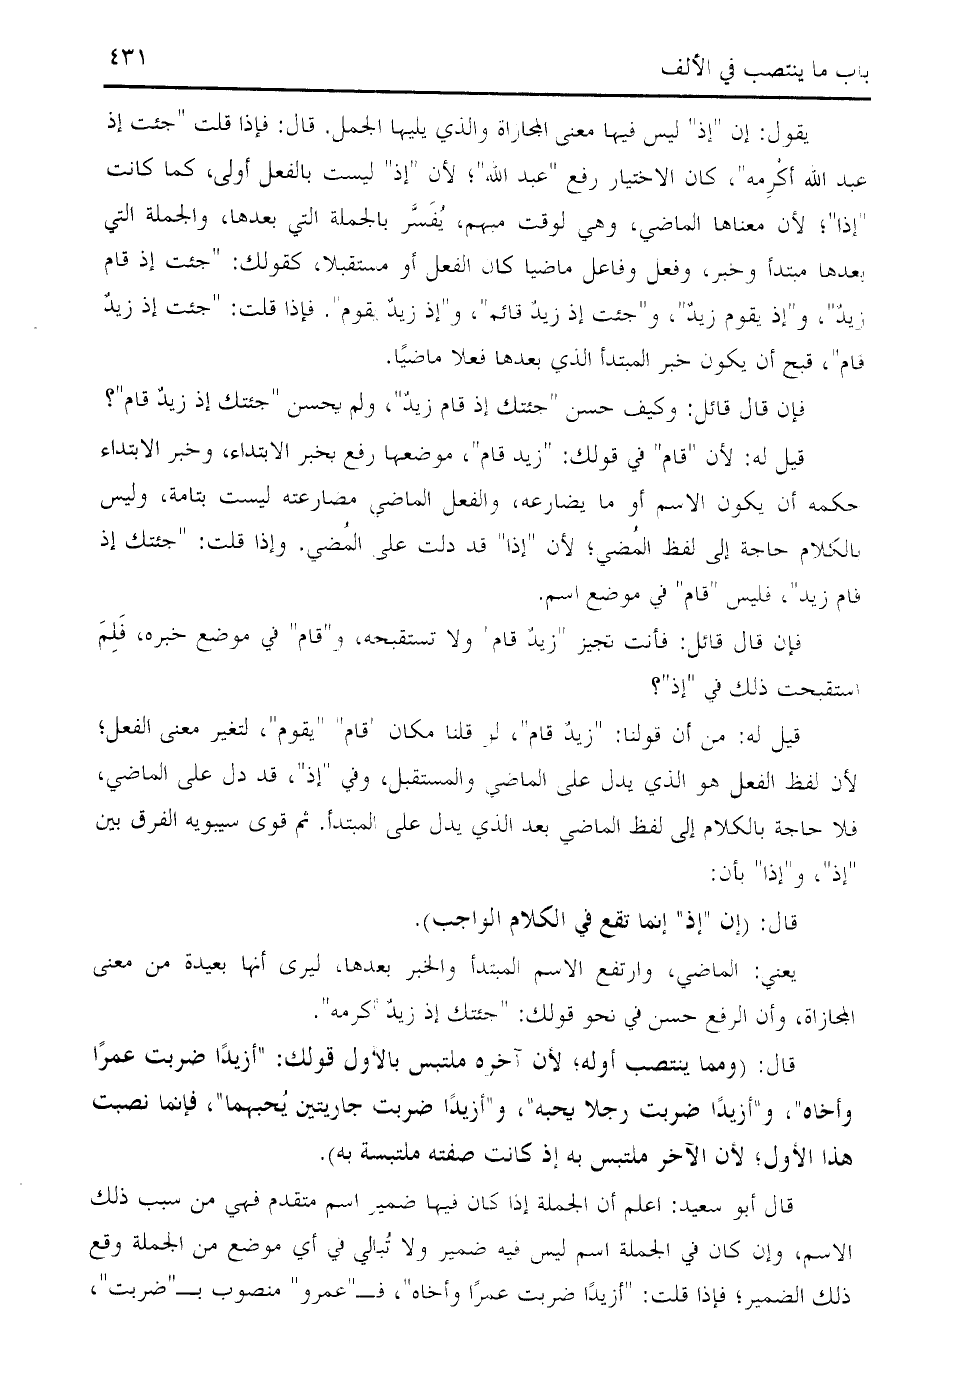 باب ما ينتصب في الألف
٤٣١
يقول: إن "إذ" ليس فيها معنى المجازاة والذي يليها الجمل. قال: فإذا قلت "جئت إذ
عبد الله أكْرِمه"، كان الاختيار رفع "عبد الله"؛ لأن "إذ" ليست بالفعل أولى، كما كانت
"إذا"؛ لأن معناها الماضي، وهي لوقت مبهم، يُفَسَّر بالجملة التي بعدها، والجملة التي
بعدها مبتدأ وخبر، وفعل وفاعل ماضيا كان الفعل أو مستقبلا، كقولك: "جئت إذ قام
زيدٌ"، و"إذ يقوم زيدٌ"، و"جئت إذ زيدٌ قائم"، و"إذ زيدٌ يقوم". فإذا قلت: "جئت إذ زيدٌ
قام"، قبح أن يكون خبر المبتدأ الذي بعدها فعلا ماضيًا.
فإن قال قائل: وكيف حسن "جئتك إذ قام زيدٌ"، ولم يحسن "جئتك إذ زيدٌ قام"؟
قيل له: لأن "قام" في قولك: "زيد قام"، موضعها رفع بخبر الابتداء، وخبر الابتداء
حكمه أن يكون الاسم أو ما يضارعه، والفعل الماضي مضارعته ليست بتامة، وليس
بالكلام حاجة إلى لفظ المُضي؛ لأن "إذا" قد دلت على المُضي. وإذا قلت: "جئتك إذ
قام زيد"، فليس "قام" في موضع اسم.
فإن قال قائل: فأنت تجيز "زيدٌ قام" ولا تستقبحه، و"قام" في موضع خبره، فَلِمَ
استقبحت ذلك في "إذ"؟
قيل له: من أن قولنا: "زيدٌ قام"، لو قلنا مكان "قام" "يقوم"، لتغير معنى الفعل؛
لأن لفظ الفعل هو الذي يدل على الماضي والمستقبل، وفي "إذ"، قد دل على الماضي،
فلا حاجة بالكلام إلى لفظ الماضي بعد الذي يدل على المبتدأ. ثم قوى سيبويه الفرق بين
"إذ"، و"إذا" بأن:
قال: (إن "إذ" إنما تقع في الكلام الواجب).
يعني: الماضي، وارتفع الاسم المبتدأ والخبر بعدها، ليرى أنها بعيدة من معنى
المجازاة، وأن الرفع حسن في نحو قولك: "جئتك إذ زيدٌ أكرمه".
قال: (ومما ينتصب أوله؛ لأن آخره ملتبس بالأول قولك: "أزيدًا ضربت عمرًا
وأخاه"، و"أزيدًا ضربت رجلا يحبه"، و"أزيدًا ضربت جاريتين يُحبهما"، فإنما نصبت
هذا الأول؛ لأن الآخر ملتبس به إذ كانت صفته ملتبسة به).
قال أبو سعيد: اعلم أن الجملة إذا كان فيها ضمير اسم متقدم فهي من سبب ذلك
الاسم، وإن كان في الجملة اسم ليس فيه ضمير ولا تُبالي في أي موضع من الجملة وقع
ذلك الضمير؛ فإذا قلت: "أزيدًا ضربت عمرًا وأخاه"، فـ"عمرو" منصوب بـ"ضربت"،